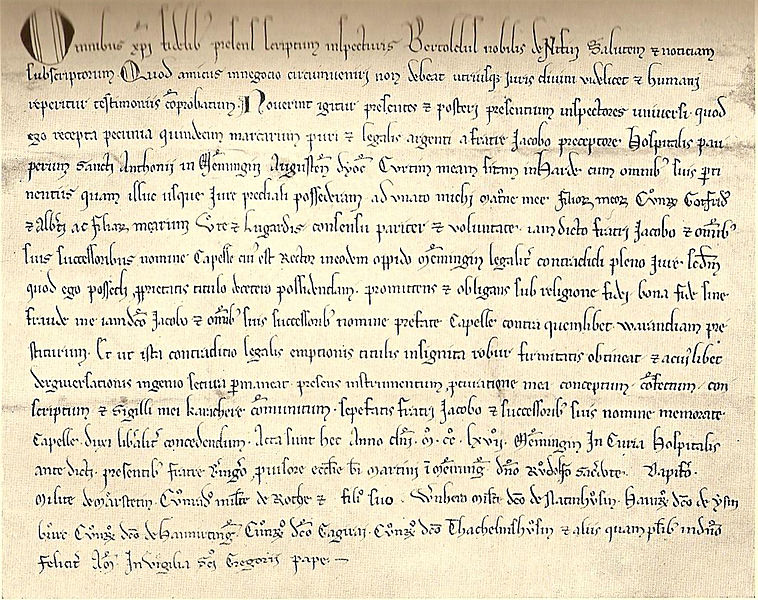 Omnibus xpi fidelib' presens scriptum inspecturis Bertoldus nobilis de Nifin Salutem et noticiam
subscriptorum Quod amicus in negocio circumveniri non debeat utriusq; iuris divini videlicet et humani
reperitur testimoniis comprobatum. Noverint igitur presentes et posteri presentium inspectores universi. quod
ego recepta pecunia quindecim marcarum puri et legalis argenti a fratre Jacobo preceptore Hospitalis pau
perum Sancti Anthonii in Memingin Augusten dyoc Curtim meam sitam in Harde cum omnib' suis perti
nentiis quam illuc usque iure predicti possederam adunata michi manu mee filior meor Cunr Gotfrid
et Alb'ti ac filiar mearum Ute et Lugardis consensu pariter et voluntate. iam dicto fratri Jacobo et omnib'
suis successoribus nomine Capelle cui' est Rector in eodem opido Memingin legalit' contradidi pleno Jure. scdm
quod ego possedi proprietatis titulo decetero possidendam. promittens et obligans sub religione fidei. bona fide sine
fraude me iamdco Jacobo et omnib' suis successorib' nomine prefate Capelle contra quemlibet warandiam pre
stiturum. Et ut ista contraditio legalis emptionis titulis insignita robur firmitatis obtineat et a cui'libet
derguersationis ingenio secura permaneat. presens instrumentum, procuratione mei conceptum. confectum. con
scriptum et Sigilli mei karactere communitum. sepefatis fratri Jacobo et successorib' suis nomine memorate
Capelle. duxi lib'alit' concedendum. Acta sunt hec Anno dni. M. cc. lxvii. Memingin In Curia Hospitalis
ante dicti. presentib' fratre priore eccl'ie bi martini i Meming. dno Rudolfo sac'dote.
Milite de Marstetin. Cunrado milite de Rothe et filio suo. Wilhelm milite dco de Hainr dco de ysin
bure Cunr dco de Cunr dco Cunr dco Thachelmshusin et aliis quam plib' in dno
Felicit' Am In vigilia sci Gregorii pape.